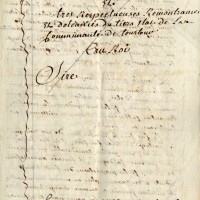 Et
tres Respectueuses Remontrances
Et doleances du tiers Etat de La
Communauté de
Au Roi
Sire